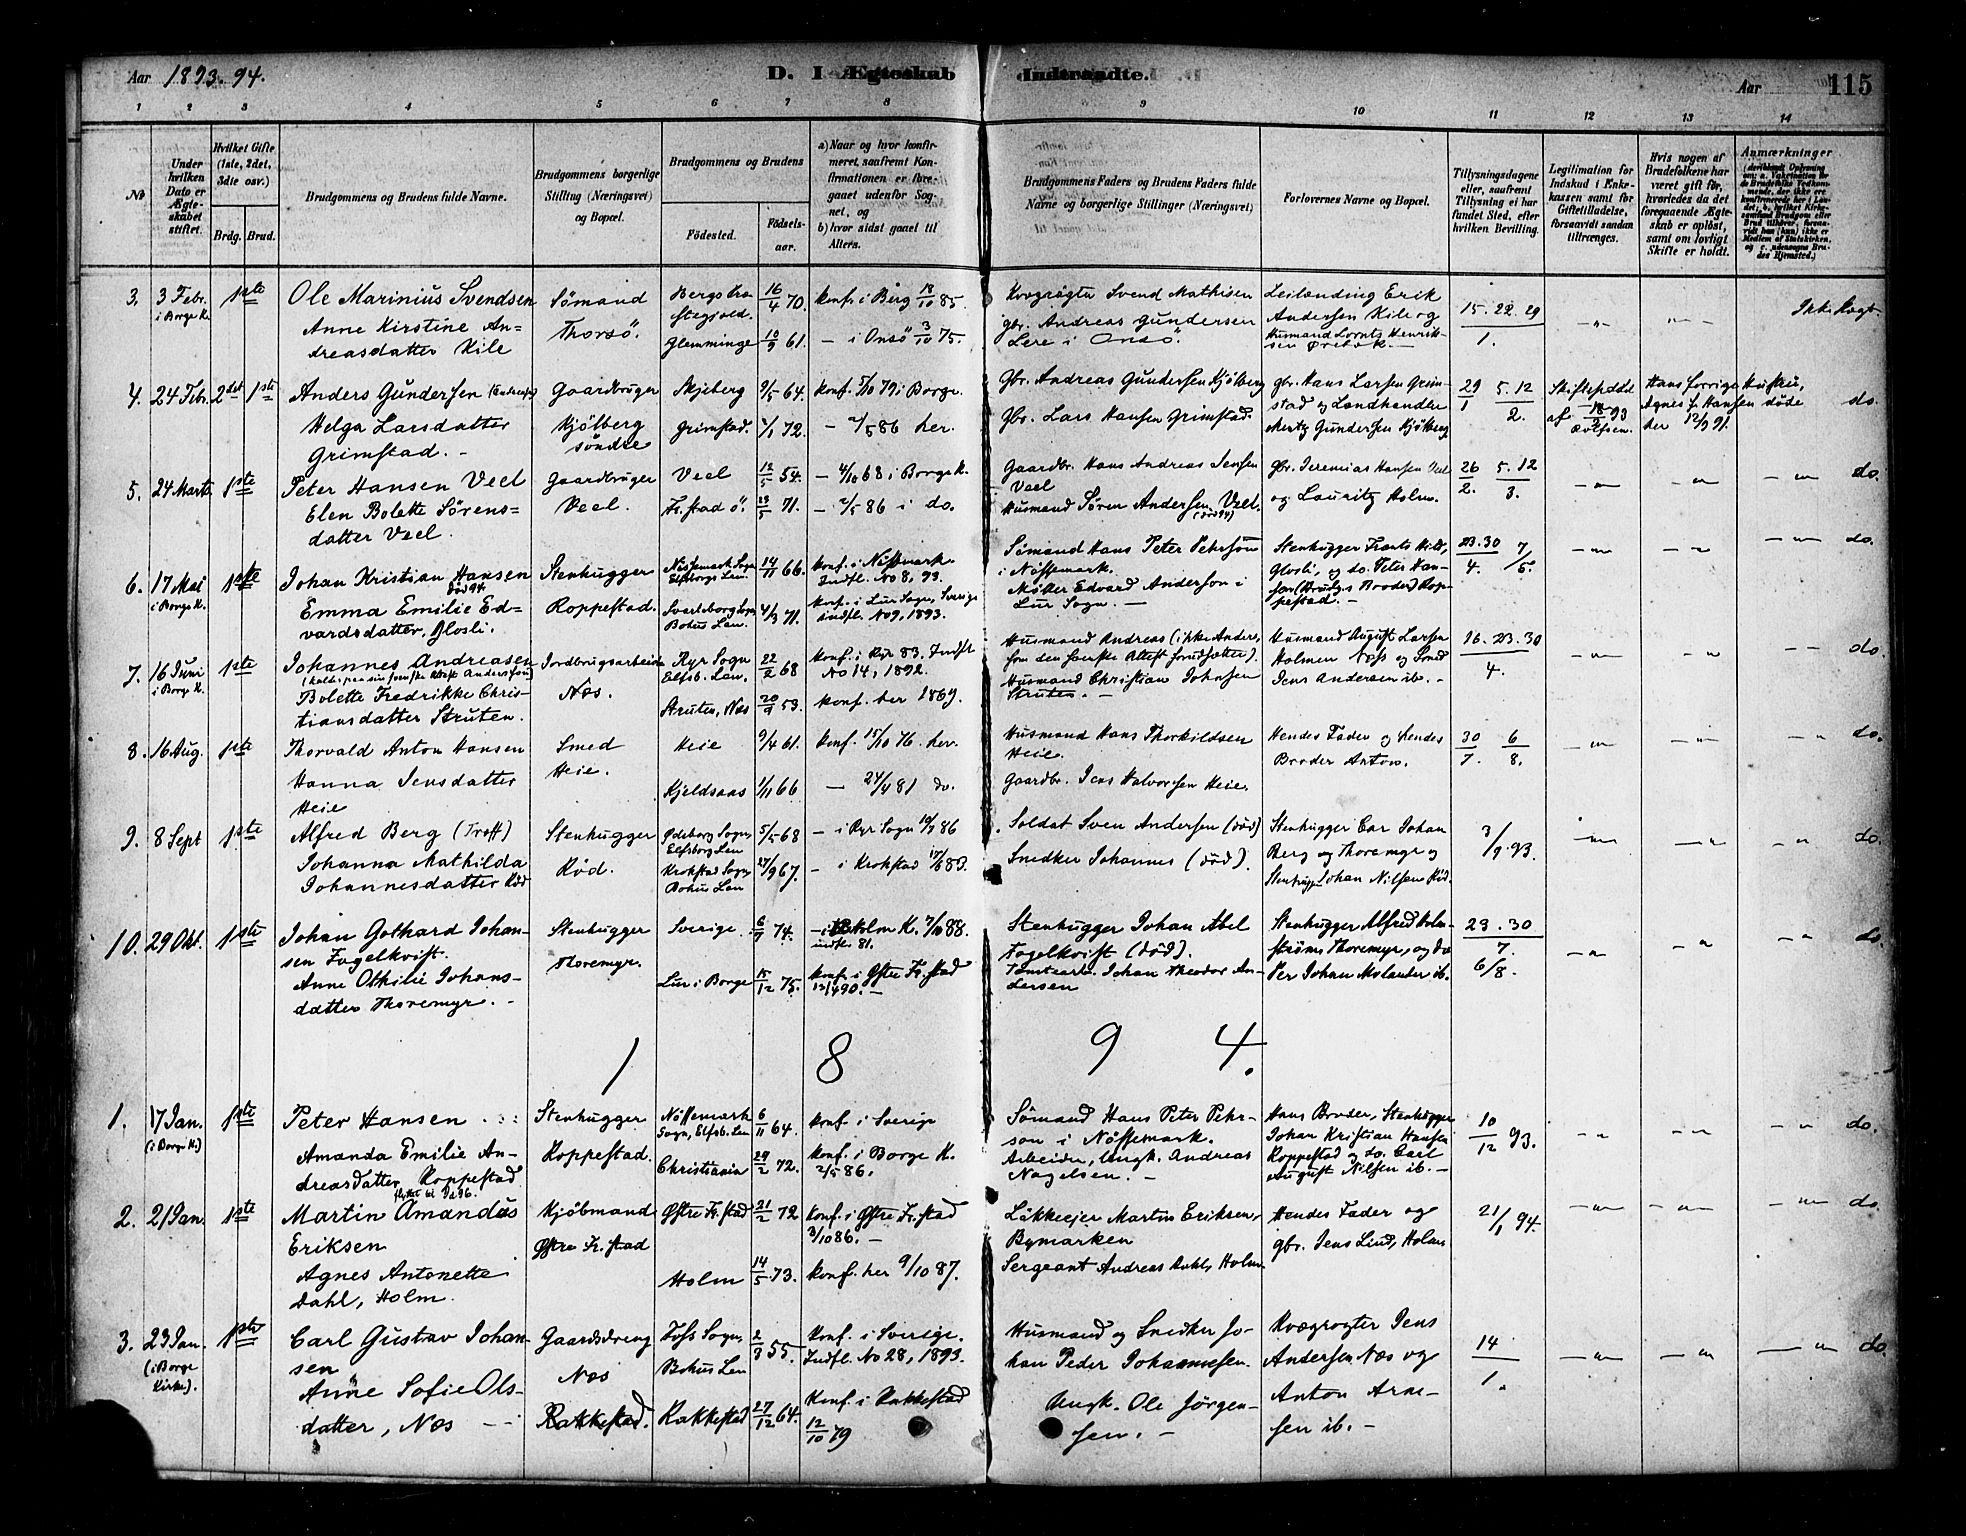 Aar 1893. 94.
D. I Ægteskab Indtraadte.
Aar 115
1 2 3 4 5 6 7 8 9 10 11 12 13 14
No
Under hvilken Dato er Ægteskabet stiftet.
Hvilket Gifte (1ste, 2det, 3die osv.)
Brdg. Brud.
Brudgommens og Brudens fulde Navne.
Brudgommens borgerlige Stilling (Næringsvei) og Bopæl.
Brudgommens og Brudens
Fødested.
Fødselsaar.
a) Naar og hvor konfirmeret, saafremt Konfirmationen er foregaaet udenfor Sognet, og
b) hvor sidst gaaet til Alters.
Brudgommens Faders og Brudens Faders fulde Navne og borgerlige Stillinger (Næringsvei)
Forlovernes Navne og Bopæl.
Tillysningsdagene eller, saafremt Tillysning ei har fundet Sted, efter hvilken Bevilling.
Legitimation for Indskud i Enkekassen samt for Giftetilladelse, forsaavidt saadan tiltrænges.
Hvis nogen af Brudefolkene har været gift før, hvorledes da det foregaaende Ægteskab er opløst, samt om lovligt Skifte er holdt.
Anmærkninger
3. 3 Febr. i Borge K. 1ste
Ole Marinius Svendsen
Anne Kirstine Andreasdatter Kile
Sømand Thorsø
Bergs Præstegjeld. 16/4 70.
Glemminge 10/9 61.
konf. i Berg 18/10 85.
— i Onsö 3/10 75.
Kvægrøgter Svend Mathisen
gbr. Andreas Gundersen Lere i Onsö.
Leilænding Erik Andersen Kile og Husmand Lorntz Henriksen
15. 22. 29 / 1.
— " — " — " Ikke Vagt.
4. 24 Febr. 2det 1ste
Anders Gundersen
Helga Larsdatter Grimstad. -
Gaardbruger Kjølberg söndre
Skjeberg 9/5 64.
Grimstad. 2/1 72.
konf. 5/10 79 i Borge.
— 2/5 86 her.
Gbr. Andreas Gundersen Kjølberg
Gbr. Lars Hansen Grimstad.
gbr. Hans Larsen Grimstad og Landhandler Mertz Gundersen Kjølberg
29/1 5. 12/2.
Skifteattest af 18/2 93
Hans forrige Hustru, Agnes f. Hansen døde her 12/9 91.
do.
5. 24 Marts 1ste
Peter Hansen Veel
Elen Bolette Sørensdatter Veel.
Gaardbruger Veel.
Veel 12/5 54.
Fr.stad ö. 23/5 71.
— 4/10 68 i Borge K.
— 2/5 86 i do.
Gaardbr. Hans Andreas Jensen Veel
Husmand Sören Andersen Veel. (død 94)
gbr. Jeremias Hansen Veel og Lauritz Holm.
26/2. 5. 12/3.
do.
6. 17 Mai i Borge K. 1ste
Johan Kristian Hansen
død 94.
Emma Emilie Edvardsdatter, Glosli.
Stenhugger Koppestad.
Nössemark Sogn Elfsborgs Len. 14/11 66.
Svarteborg Sogn Bohus Len. 4/3 71.
konf. i Nössemark. Indfl. No 8, 93.
konf. i Lur Sogn, Sverige indfl. No 9, 1893.
Sømand Hans Peter Pehrson i Nössemark.
Møller Edvard Anderson i Lur Sogn. —
Stenhugger Frants Glosli, og do. Peter Hansen (Brudgs Broder) Koppestad. -
23. 30/4. 7/5.
do.
7. 16 Juni i Borge K. 1ste
Johannes Andreasen
Bolette Fredrikke Christiansdatter Struten.
Jordbrugsarbeider Næs.
Ryr Sogn Elfsb. Len. 22/2 68
Struten, Næs 20/9 53.
konf. i Ryr 83. Indfl. No 14, 1892.
konf. her 1869.
Husmand Andreas (ikke Anders, som den svenske Attest forudsætter).
Husmand Christian Johnsen Struten. —
Husmand August Larsen Holmen Næs og Smed Jens Andersen ib. -
16. 23. 30 / 4.
do.
8. 16 Aug. 1ste
Thorvald Anton Hansen
Hanna Jensdatter Heie
Smed Heie.
Heie 9/4 61.
Kjeldsaas 1/11 66
konf. 15/10 76. her.
— 24/4 81 do.
Husmand Hans Thorkildsen Heie.
Gaardbr. Jens Halvorsen Heie.
Hendes Fader og hendes Broder Anton.
30/7. 6/8.
do.
9. 8 Sept 1ste
Alfred Berg (Troff)
Johanna Mathilda Johannesdatter Röd
Stenhugger Röd.
Ödeborg Sogn, Elfsborg Len 5/5 68
Krokstad Sogn Bohus Len 27/9 67.
— i Ryr Sogn 19/7 86
— i Krokstad 17/6 83.
Soldat Sven Andersen (død)
Snedker Johannes (død).
Stenhugger Carl Johan Berg og Thoremyr og Stenhugger Johan Nilsen Röd.
3/9. 93.
do.
10. 29 Okt. 1ste
Johan Gothard Johansen Fogelkvist.
Anne Othilie Johansdatter Thoremyr. -
Stenhugger Thoremyr.
Sverige. 6/7 74.
Lur i Borge 15/12 75.
— i Holm K. 7/10 88. indfl. 81.
konf. i Østre Fr.stad 12/4 90. —
Stenhugger Johan Abel Fogelkvist (død).
Tomtearb. Johan Theodor Andersen
Stenhugger Alfred Holmstrøm, Thoremyr, og do Per Johan Molander ib.
23. 30 / 7. 6/8.
do.
1 8 9 4.
1. 17 Jan. (i Borge K.) 1ste
Peter Hansen
Amanda Emilie Andreasdatter Koppestad
Stenhugger Koppestad.
Nössemark Sogn, Elfsb. Len 6/11 64.
Christiania 29/2 72.
konf. i Sverige
konf. i Borge K. 2/5 86.
Sømand Hans Peter Pehrson i Nössemark.
Arbeider, Ungk. Andreas Nagelsen. —
Hans Broder, Stenhugger Johan Kristian Hansen Koppestad og do. Carl August Nilsen ib. —
10/12 93.
do.
2. 21 Jan. 1ste
Martin Amandus Eriksen
Agnes Antonette Dahl, Holm.
Kjøbmand Østre Fr.stad
Østre Fr.stad 21/2 72
Holm 14/5. 73.
konf. i Østre Fr.stad 3/10 86. —
konf. her 9/10 87.
Løkkeejer Martin Eriksen, Bymarken
Sergeant Andreas Dahl, Holm.
Hendes Fader og gbr. Jens Lind, Holm
21/1 94.
do.
3. 23 Jan. (i Borge Kirke). 1ste
Carl Gustav Johansen
Anne Sofie Olsdatter, Næs
Gaardsdreng Næs
Rakkestad.
Foss Sogn, Bohus Len 2/3 55.
Rakkestad 27/12 64.
Konf. i Sverige. Indfl. No 28, 1893.
Konf. i Rakkestad 12/10 79
Husmand og Snedker Johan Peder Johannesen.
Ungk. Ole Jörgensen. —
Kvægrøgter Jens Andersen Næs og Anton Arnesen ib. —
14/1.
do.